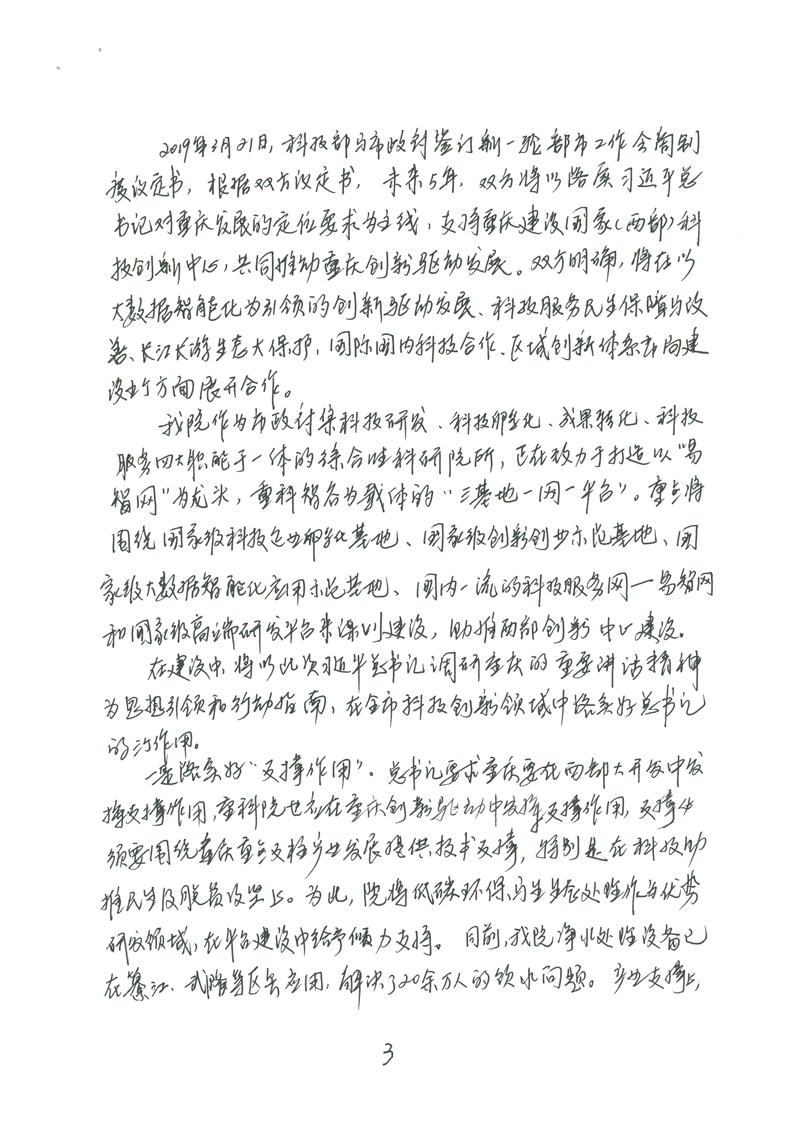 2019年3月21日，科技部与市政府签订新一轮部市工作会商制
度议定书，根据双方议定书，未来5年，双方将以落实习近平总
书记对重庆发展的定位要求为主线，支持重庆建设国家（西部）科
技创新中心，共同推动重庆创新驱动发展。双方明确，将在以
大数据智能化为引领的创新驱动发展、科技服务民生保障与改
善、长江上游生态大保护，国际国内科技合作、区域创新体系布局建
设五个方面展开合作。
我院作为市政府集科技研发、科技孵化、成果转化、科技
服务四大职能于一体的综合性科研院所，正在致力于打造以“易
智网”为龙头，重科智谷为载体的“三基地一网一平台”。重点将
围绕国家级科技企业孵化基地、国家级创新创业示范基地、国
家级大数据智能化应用示范基地、国内一流的科技服务网—易智网
和国家级高端研发平台来谋划建设，助推西部创新中心建设。
在建设中，将以此次习近平总书记调研重庆的重要讲话精神
为思想引领和行动指南，在全市科技创新领域中落实好总书记
的三个作用。
一是落实好“支撑作用”。总书记要求重庆要在西部大开发中发
挥支撑作用，重科院也应在重庆创新驱动中发挥支撑作用，支撑必
须要围绕重庆重点支柱产业发展提供技术支撑，特别是在科技助
推民生及脱贫攻坚上。为此，院将低碳环保、与生生态处理作为优势
研发领域，在平台建设中给予倾力支持。目前，我院净水处理设备已
在綦江、武隆等区县应用，解决了20余万人的饮水问题。产业支撑上，
3